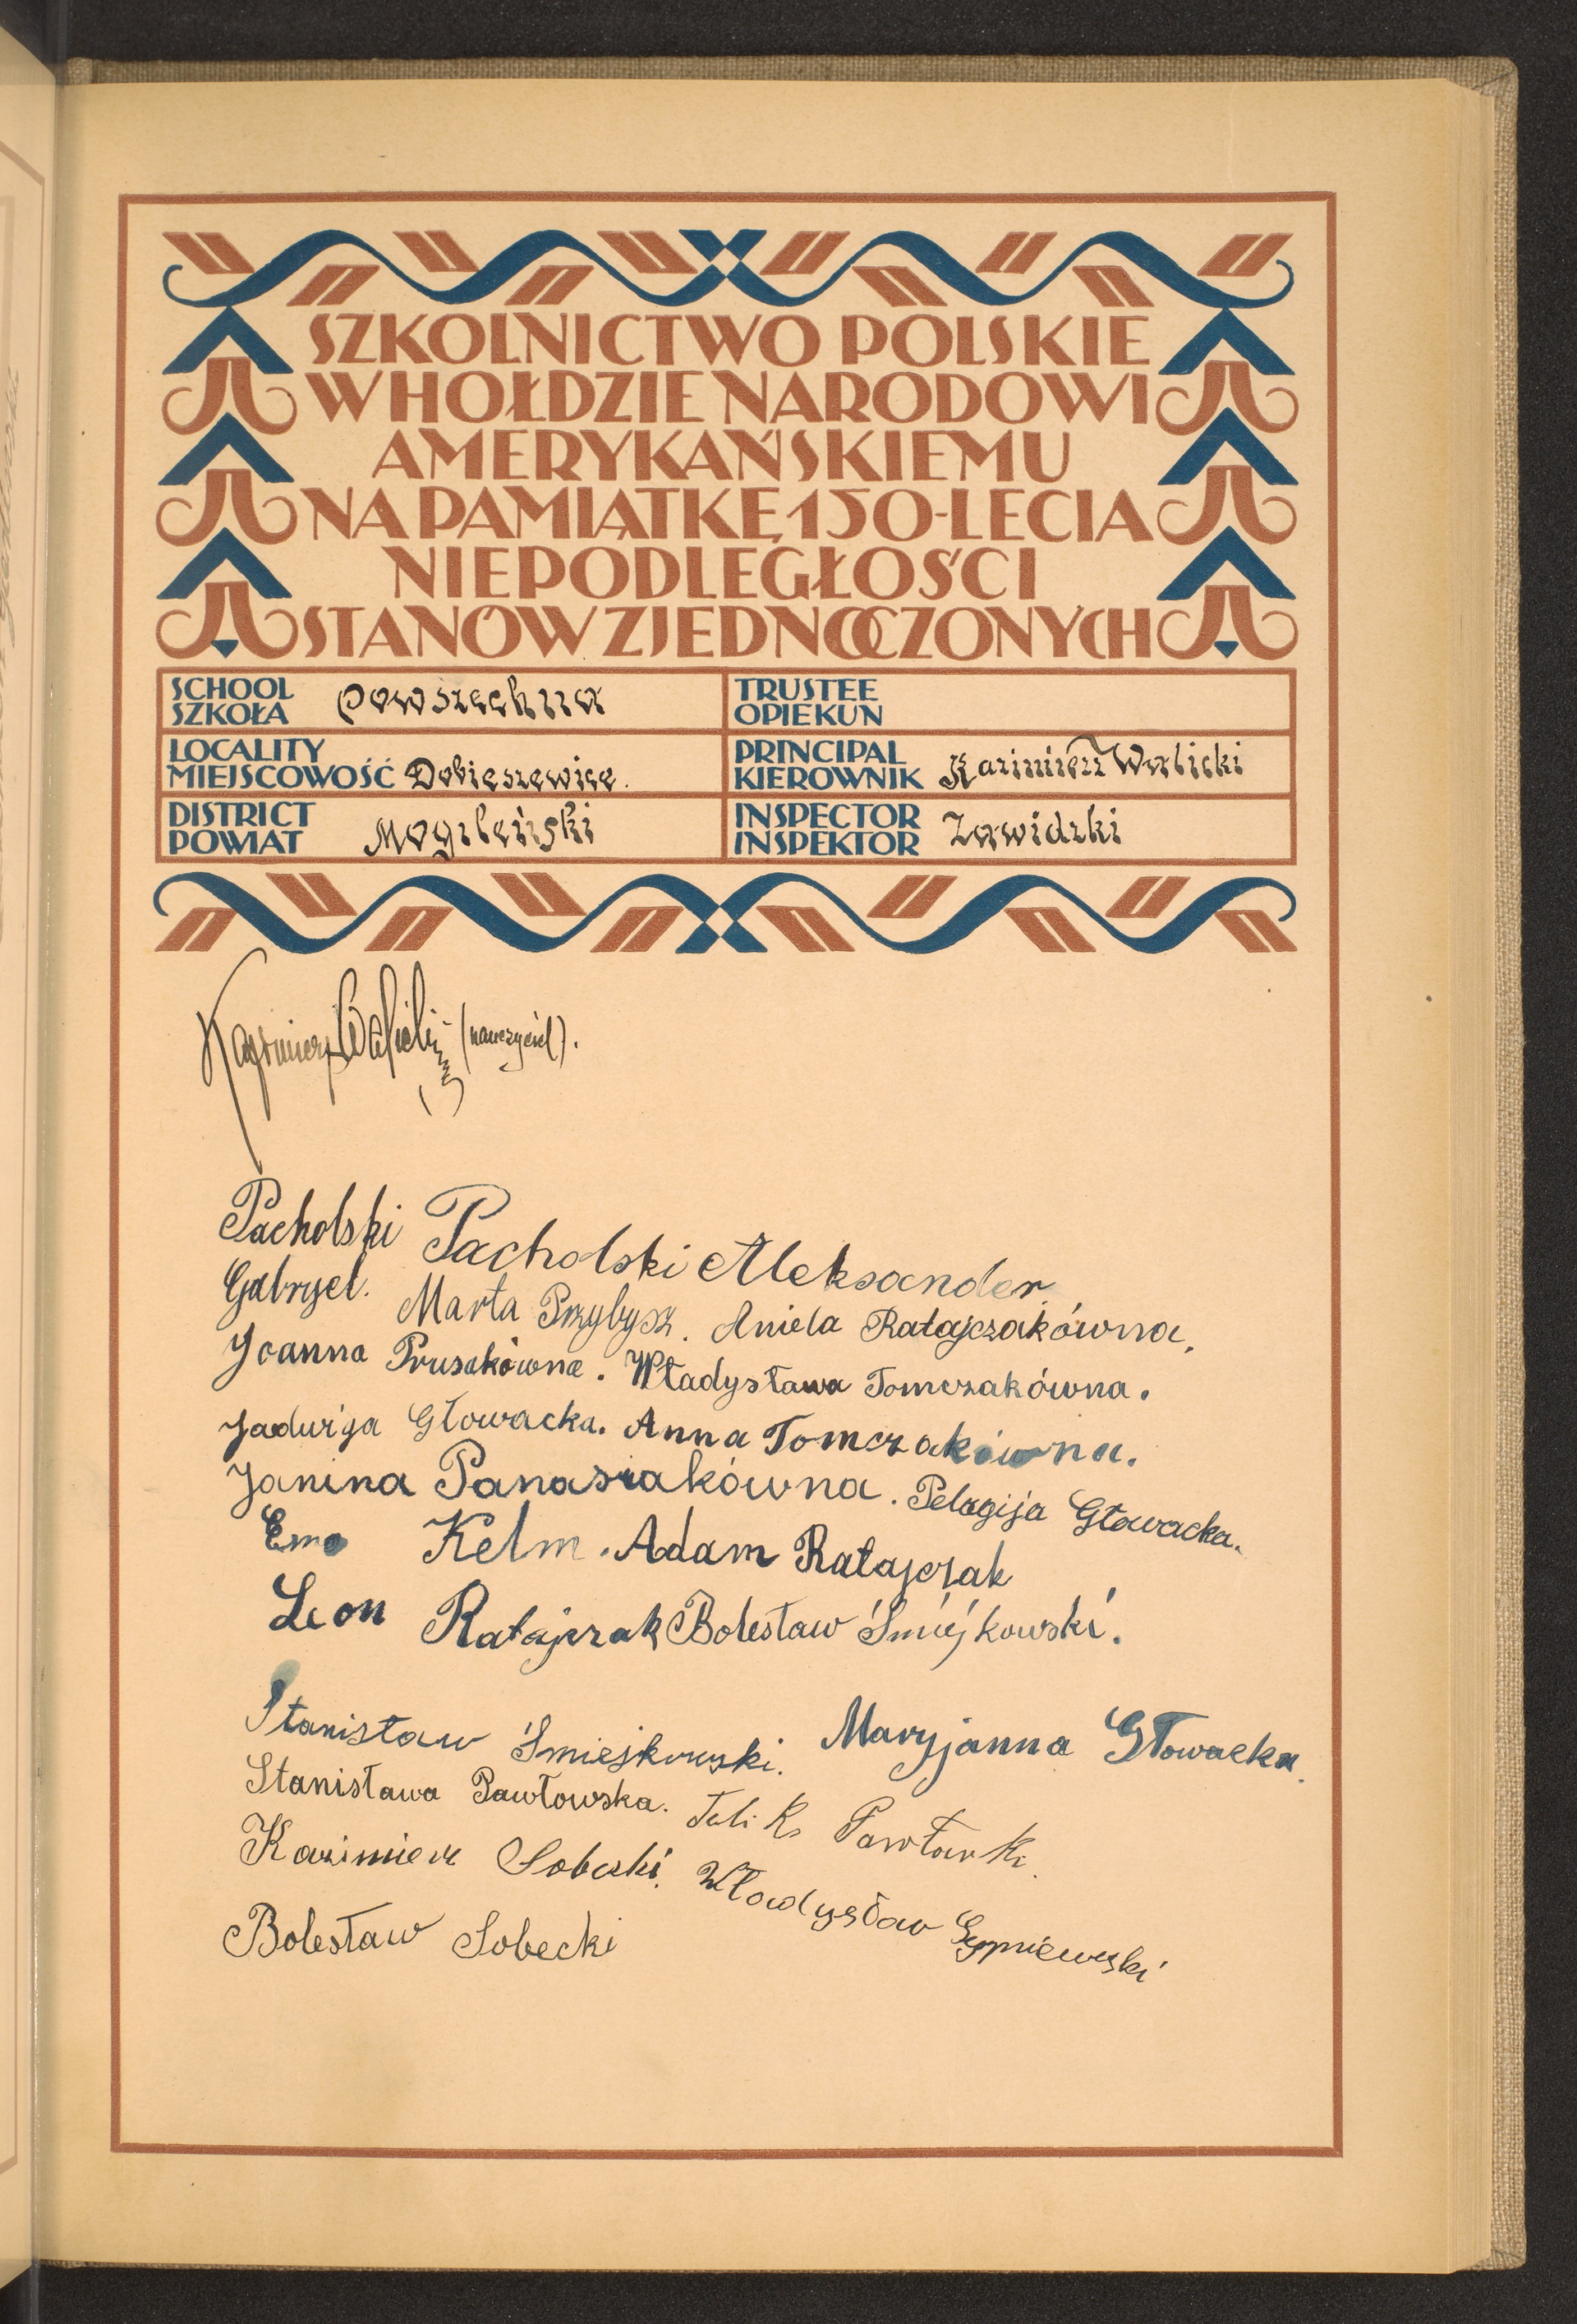 SZKOLNICTWO POLSKIE
W HOŁDZIE NARODOWI
AMERYKAŃSKIEMU
NA PAMIĄTKĘ 150-LECIA
NIEPODLEGŁOŚCI
STANÓW ZJEDNOCZONYCH
SCHOOL
SZKOŁA powszechna
TRUSTEE
OPIEKUN
LOCALITY
MIEJSCOWOŚĆ Dobieszewice.
PRINCIPAL
KIEROWNIK Kazimierz Walicki
DISTRICT
POWIAT Mogileński
INSPECTOR
INSPEKTOR Zawidzki
Kazimierz Walicki (nauczyciel).
Pacholski Pacholski Aleksander
Gabryel. Marta Przybysz. Aniela Ratajczakówna,
Joanna Prusakówna. Władysława Tomczakówna.
Jadwiga Głowacka. Anna Tomczakówna.
Janina Panasiakówna. Pelagija Głowacka.
Ema Kelm. Adam Ratajczak
Leon Ratajczak Bolesław Śmiejkowski.
Stanisław Śmiejkowski. Maryjanna Głowacka.
Stanisława Pawłowska.
Kazimierz Sobecki. Władysław
Bolesław Sobecki